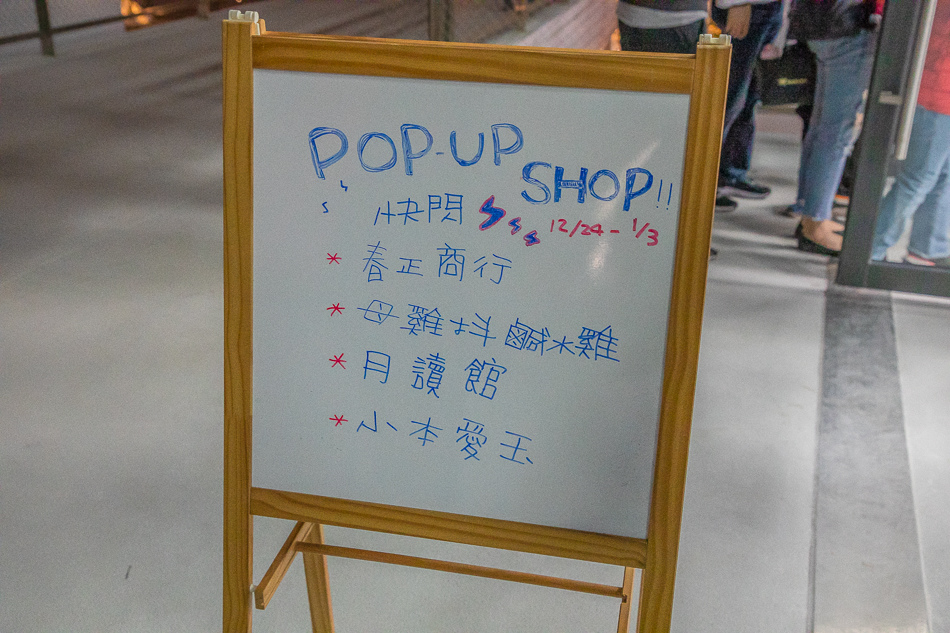 POP-UP
SHOP!!
快閃 12/24 - 1/3
* 春正商行
* 母雞抖鹹水雞
* 月讀館
* 小本愛玉